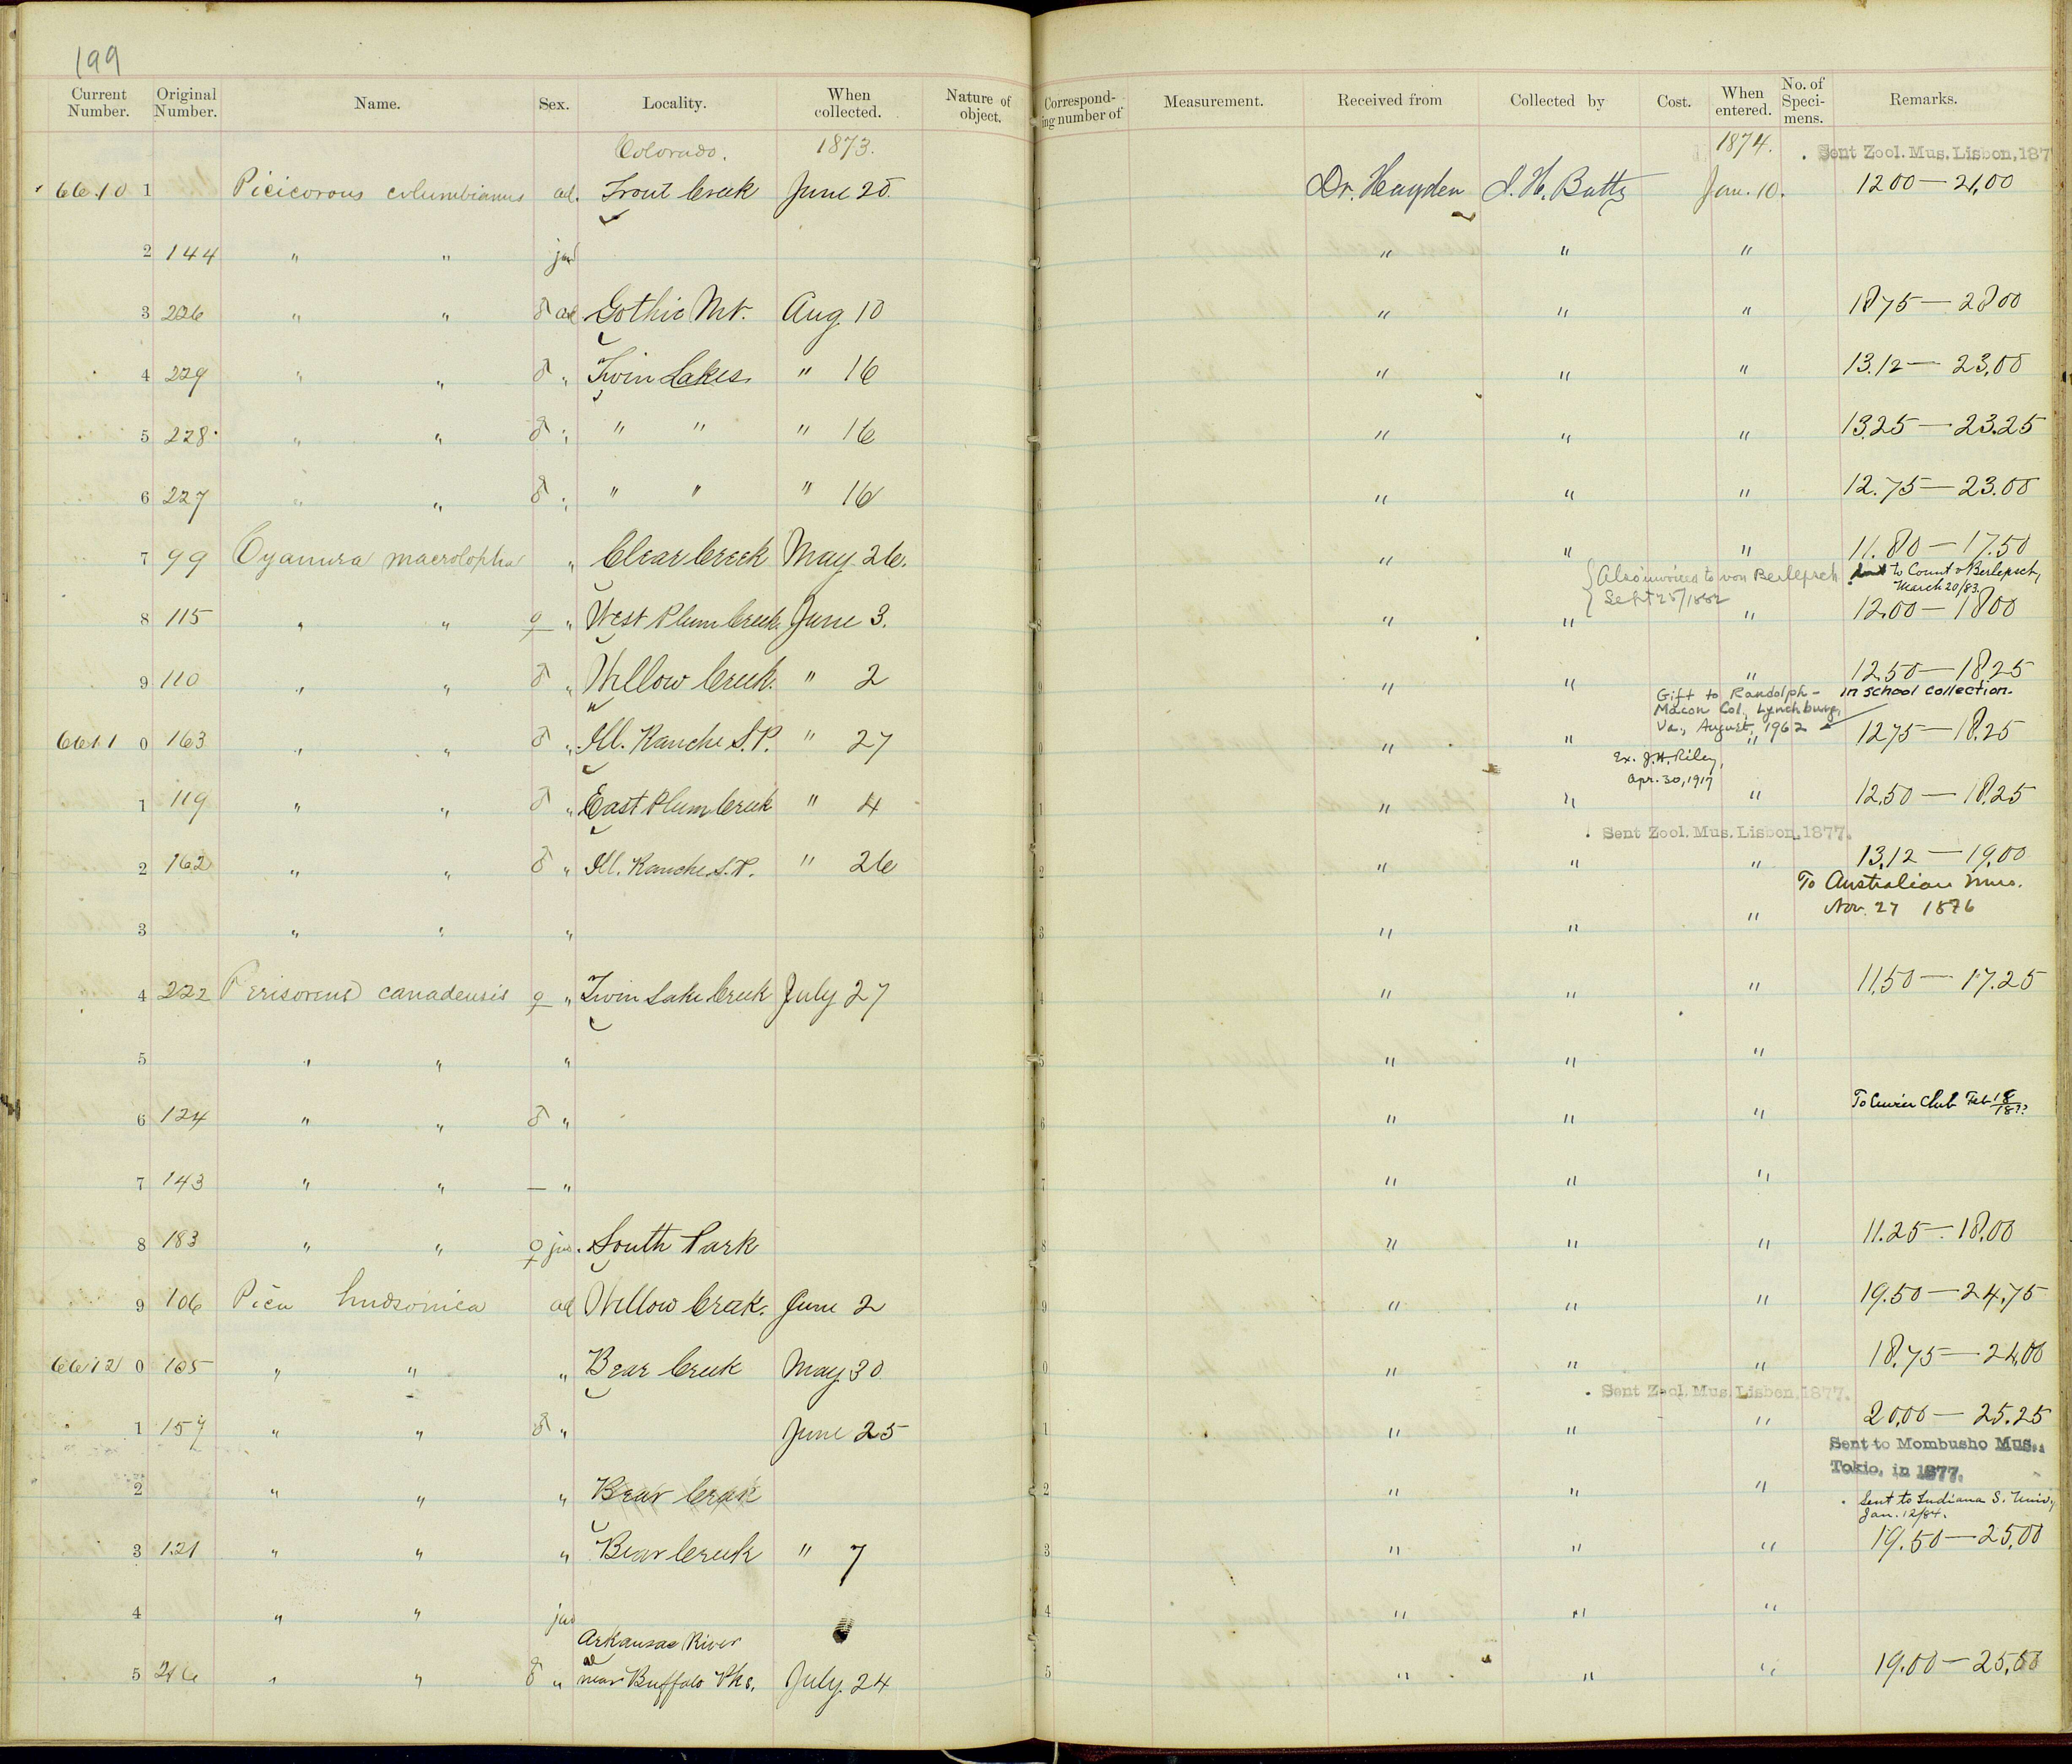 199
Current Number. Original Number. Name. Sex. Locality. When collected. Nature of object. Corresponding number of Measurement. Received from Collected by Cost. When entered. No. of Specimens. Remarks.
Colorado. 1873. 1874. Sent Zool. Mus. Lisbon, 187
6610 1 Picicorous columbianus ad. Trout Creek June 20. 1 Dr. Hayden J. H. Batty Jan. 10. 12 00 — 21,00
2 144 " " juv " " "
3 226 " " ♂ ad Gothic Mt. Aug 10 " " " 18 75 — 28 00
4 229 " " ♂ " Twin Lakes. " 16 4 " " " 13.12 — 23,00
5 228 " " ♂ " " " " 16 " " " 13,25 — 23.25
6 227 " " ♂ " " " " 16 6 " " " 12.75 — 23.00
7 99 Cyanura macrolopha " Clear Creek May 26. 7 " " " 11.80 — 17.50
Also invoiced to von Berlepsch Sent to Count v Berlepsch,
Sept 25/1882 March 20/83.
8 115 " " ♀ " West Plum Creek June 3. 8 " " " 12,00 — 18 00
9 110 " " ♂ " Willow Creek. " 2 9 " " " 12,50 — 18.25
Gift to Randolph- in school collection.
Macon Col, Lynchburg,
Va., August, 1962
6611 0 163 " " ♂ " Ill. Ranche S.P. " 27 0 " " " 12 75 — 18.25
Ex. J.H. Riley,
Apr. 30, 1917
1 119 " " ♂ " East Plum Creek " 4 1 " " " 12,50 — 18,25
Sent Zool. Mus. Lisbon, 1877.
2 162 " " ♂ " Ill. Ranche S.P. " 26 2 " " " 13,12 — 19,00
To Australian Mus.
Nov. 27 1876
3 " " " 3 " " "
4 222 Perisoreus canadensis ♀ " Twin Lake Creek July 27 4 " " " 11,50 — 17.25
5 " " " 5 " " "
6 124 " " ♂ " 6 " " " To Cuvier Club Feb 18
7 143 " " — " 7 " " "
8 183 " " ♀ juv. South Park 8 " " " 11.25 — 18,00
9 106 Pica hudsonica ad Willow Creek. June 2 9 " " " 19.50 — 24,75
6612 0 105 " " " Bear Creek May 30 0 " " " 18,75 — 24,00
Sent Zool. Mus. Lisbon, 1877.
1 157 " " ♂ " June 25 1 " " " 20,00 — 25.25
Sent to Mombusho Mus.,
Tokio, in 1877.
2 " " " Bear Creek 2 " " "
Sent to Indiana S. Univ,
Jan. 12/84.
3 121 " " " Bear Creek " 7 3 " " " 19.50 — 25,00
4 " " juv 4 " " "
Arkansas River
5 216 " " ♂ " near Buffalo Pks. July 24 5 " " " 19.00 — 25,50